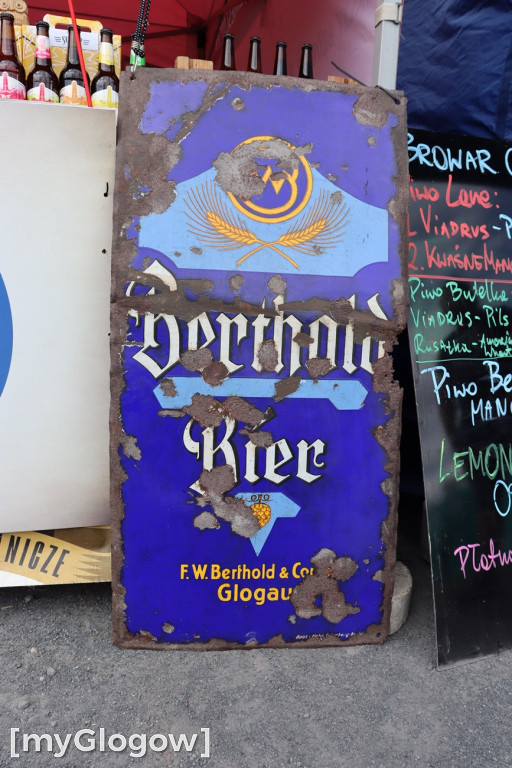 Berthold
Bier
F.W. Berthold & Co
Glogau
NICZE
BROWAR
Piwo Lane:
1. VIADRUS - P
2. KWAŚNE MAN
Piwo Butelka
VIADRUS - Pils
RUSAŁKA - American Wheat
Piwo Be
MAN
LEMON
0
Płatn
[myGlogow]